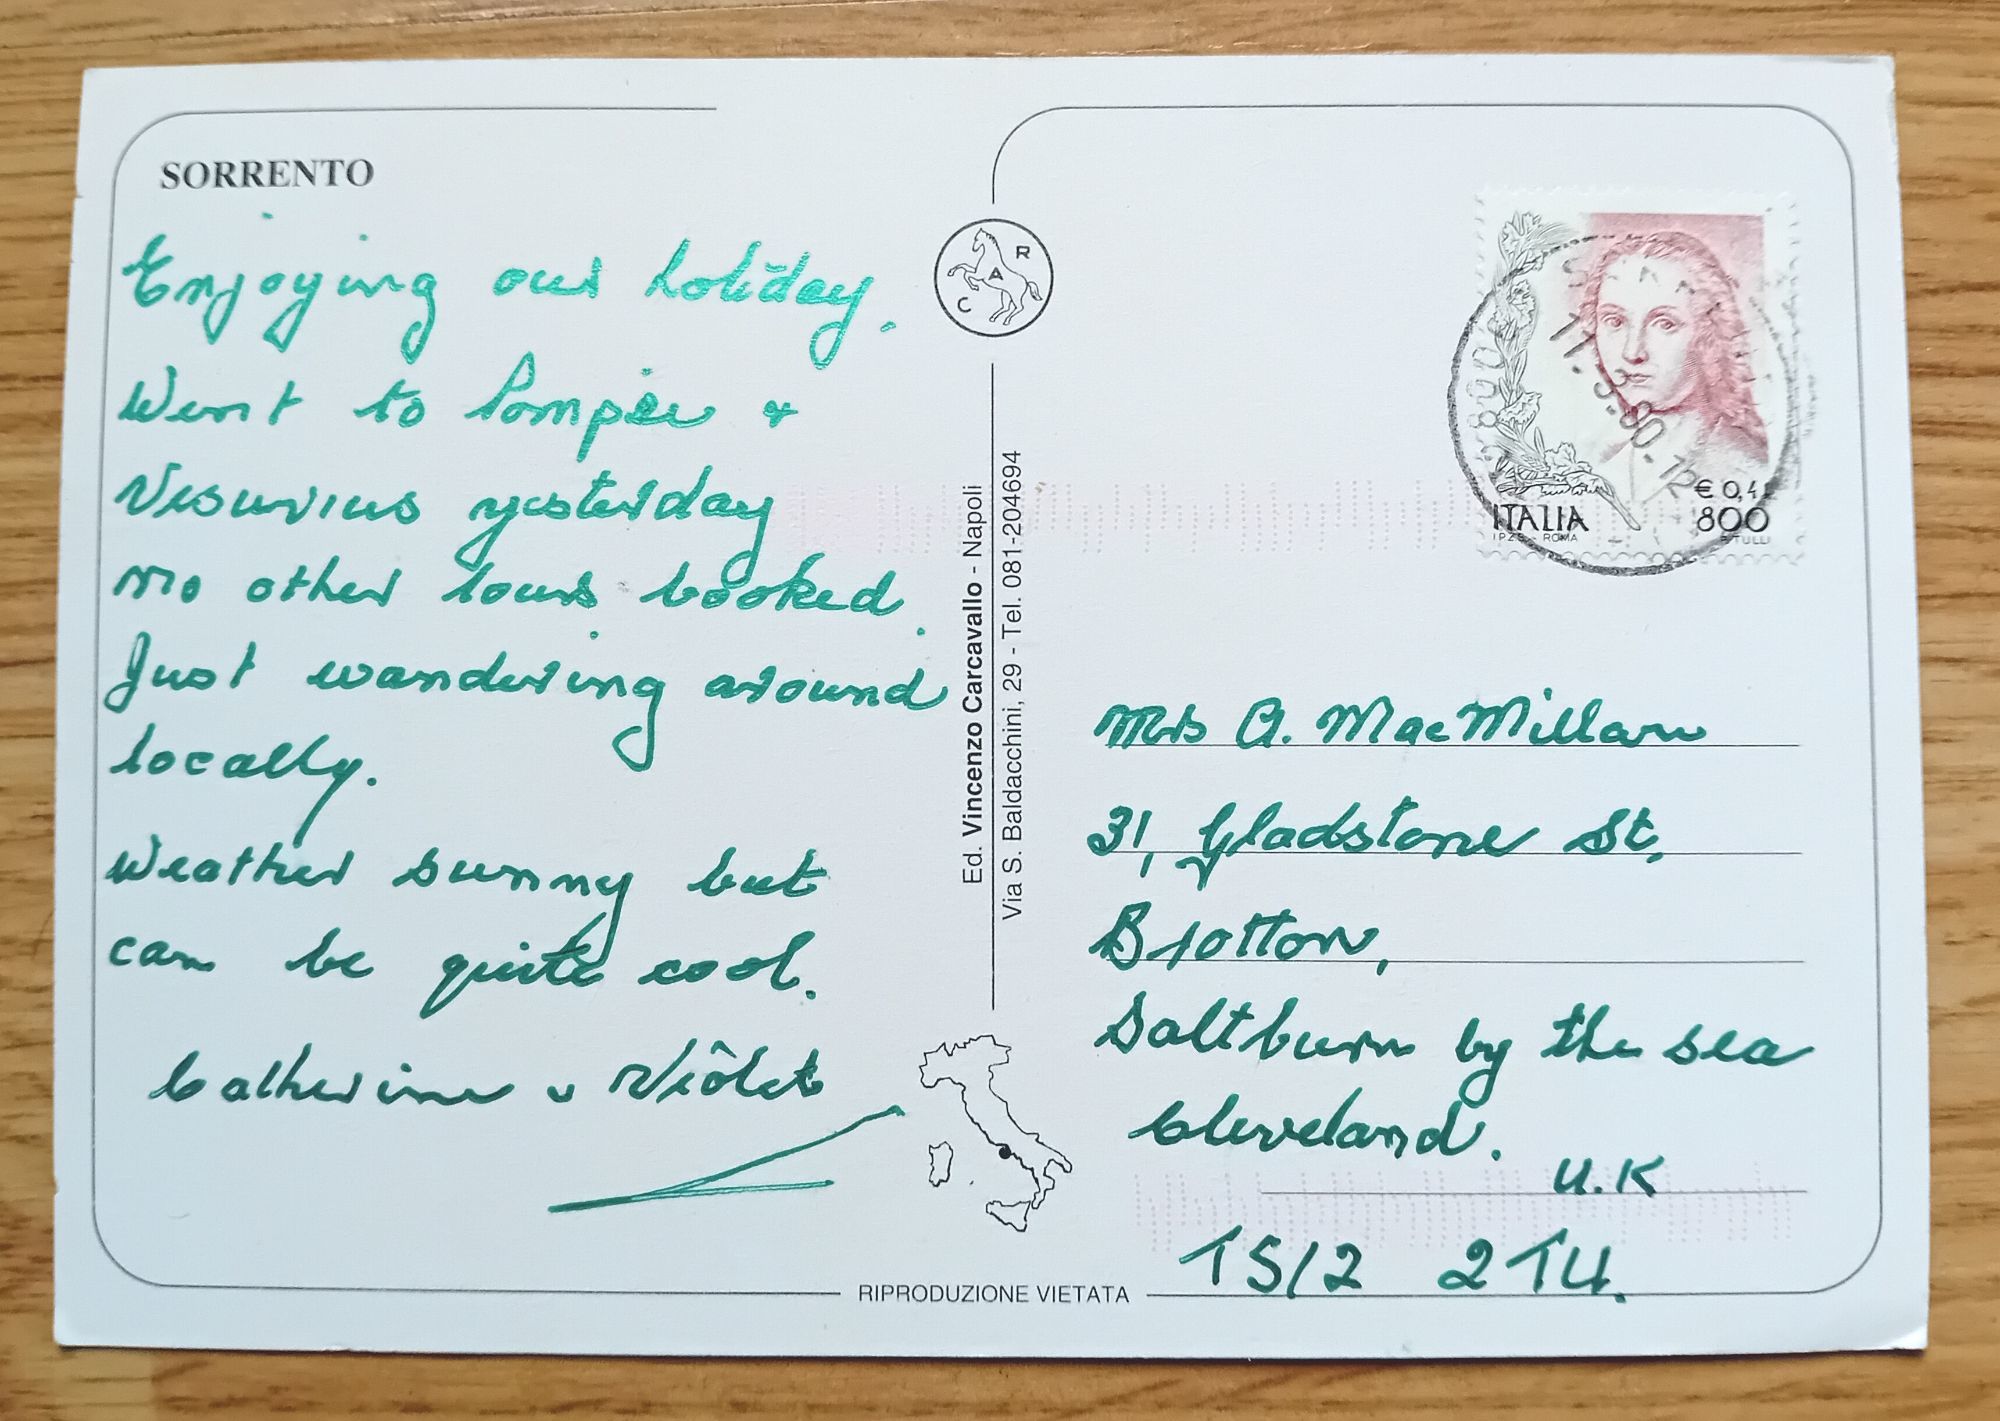 SORRENTO
Enjoying our holiday.
Went to Pompeii &
Vesuvius yesterday
no other tours booked.
Just wandering around
locally.
Weather sunny but
can be quite cool.
Catherine & Violet
R
A
C
Ed. Vincenzo Carcavallo - Napoli
Via S. Baldacchini, 29 - Tel. 081-204694
RIPRODUZIONE VIETATA
€ 0,41
ITALIA 800
I.P.Z.S. ROMA TULLI
Mrs A. MacMillan
31, Gladstone St,
Brotton,
Saltburn by the sea
Cleveland.
U.K
TS12 2TU.